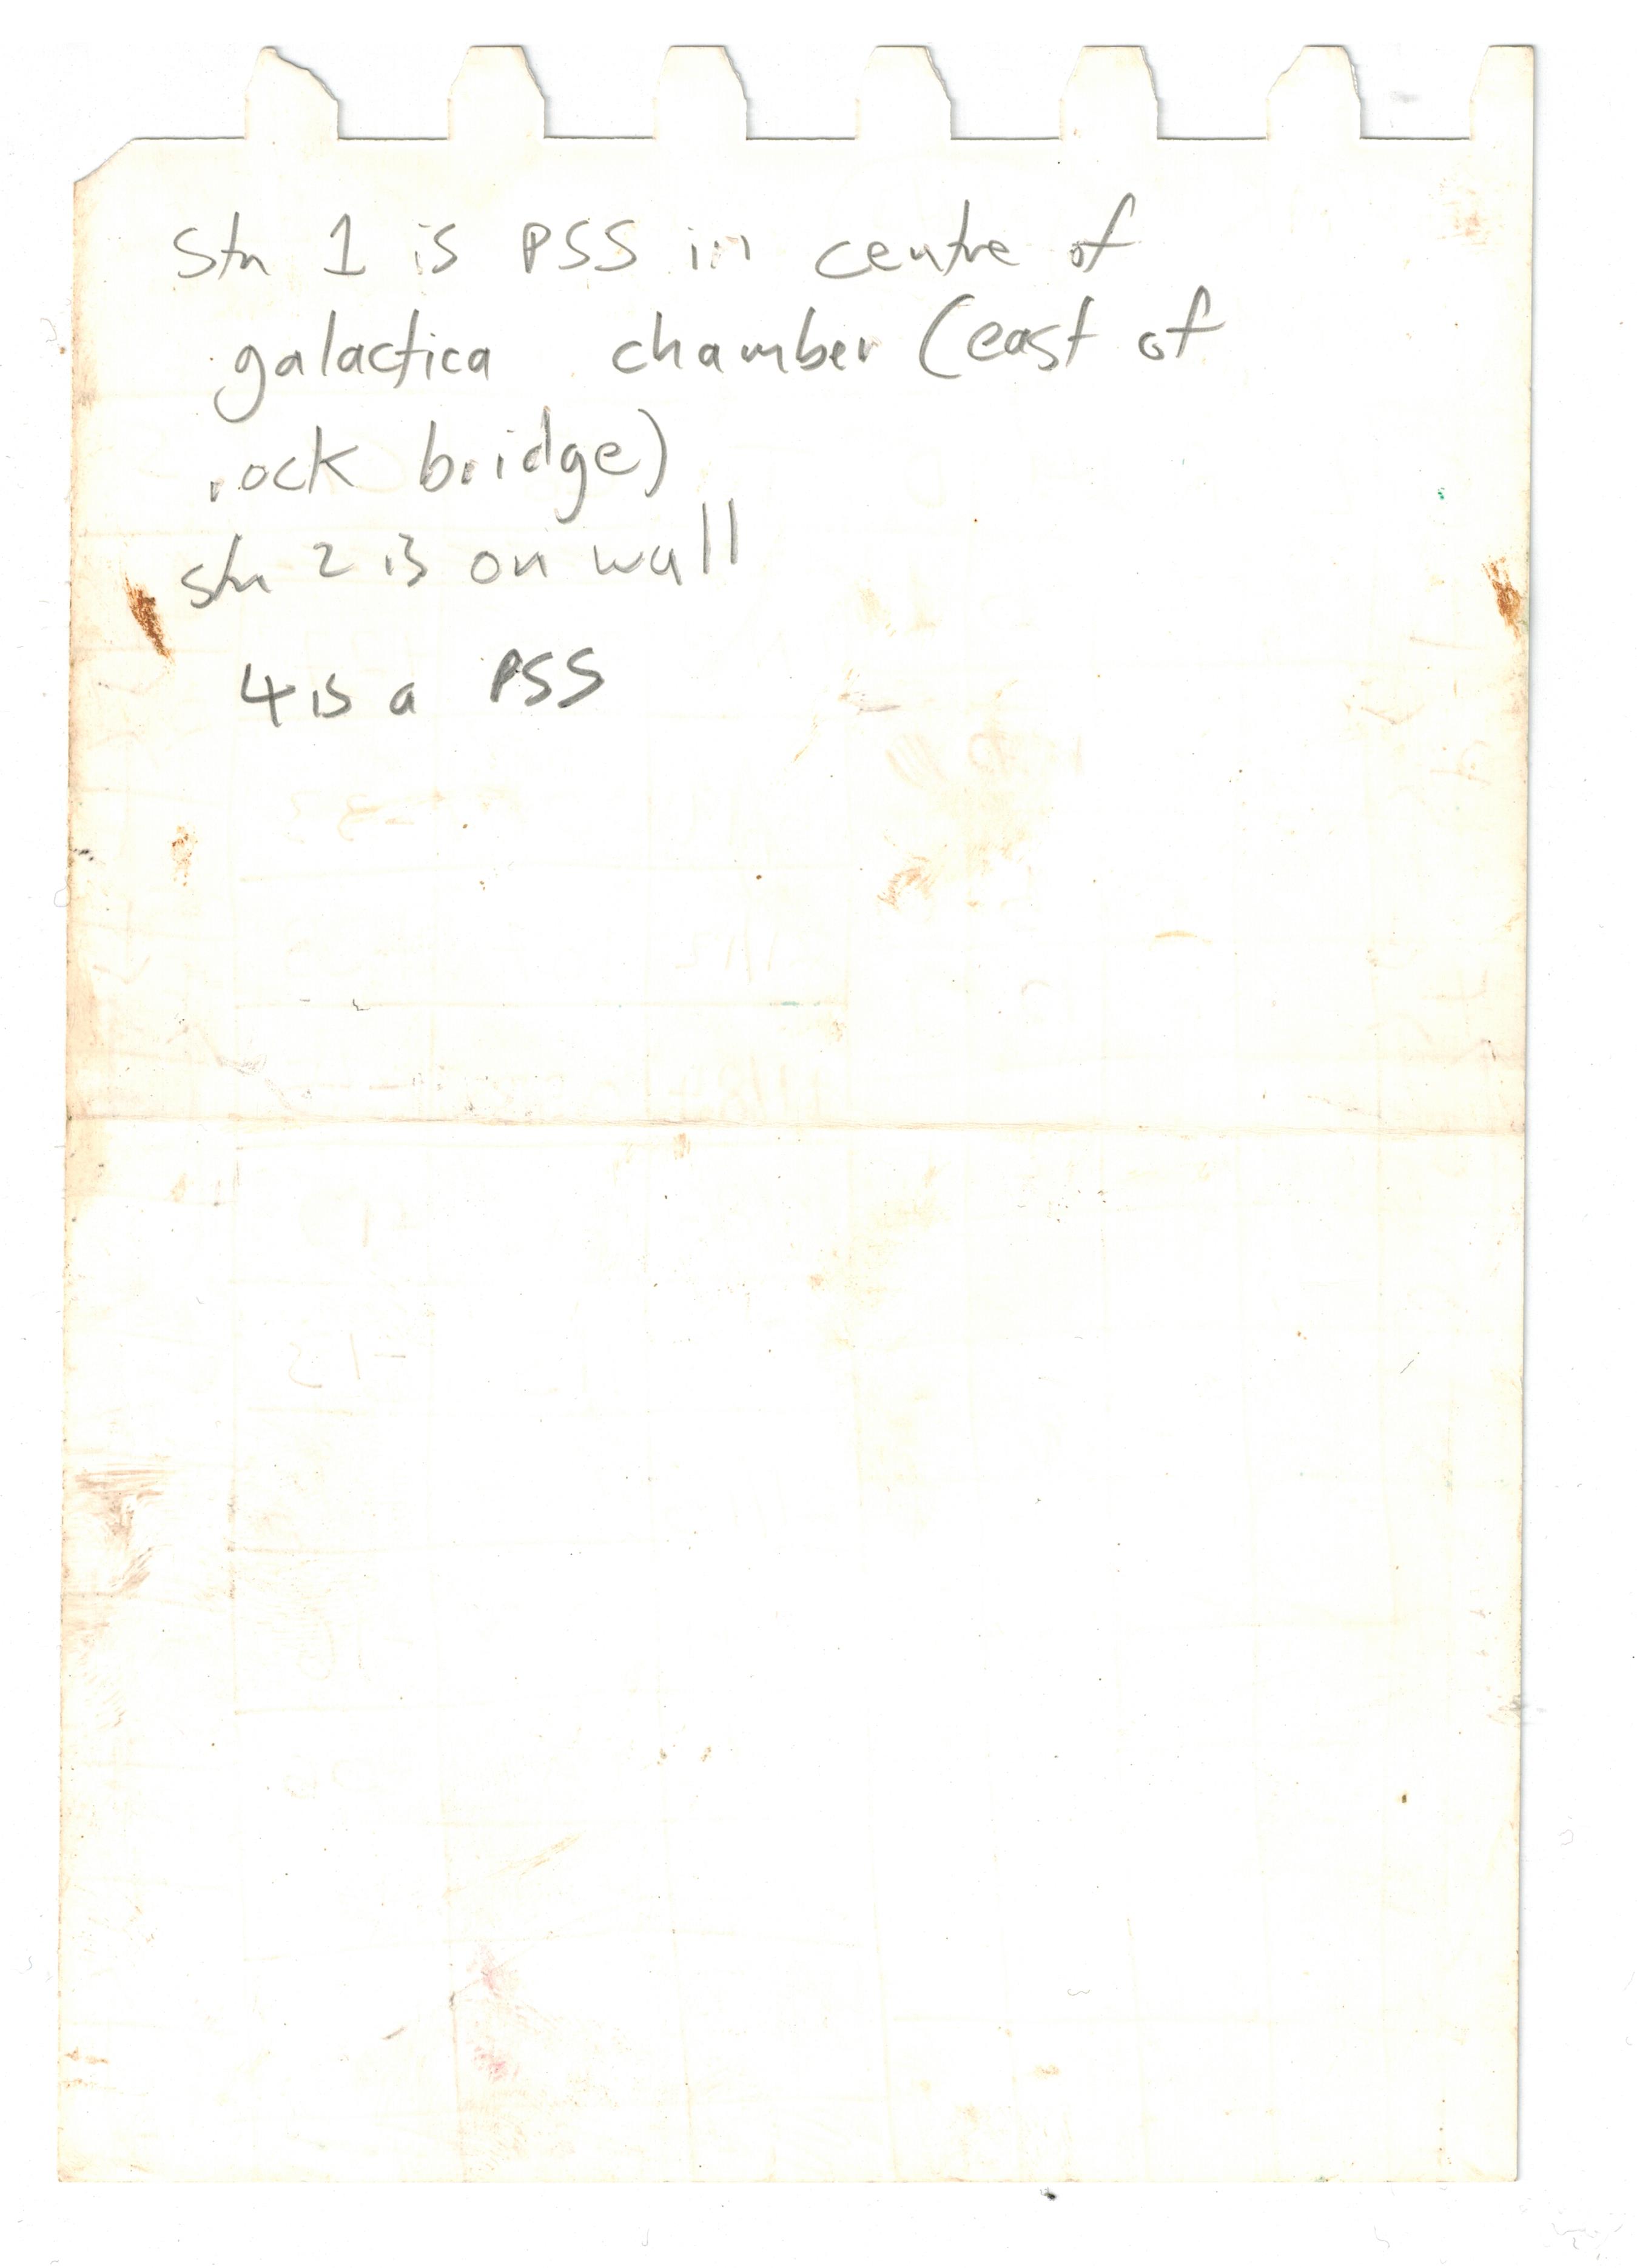 Stn 1 is PSS in centre of
galactica chamber (east of
rock bridge)
stn 2 is on wall
4 is a PSS